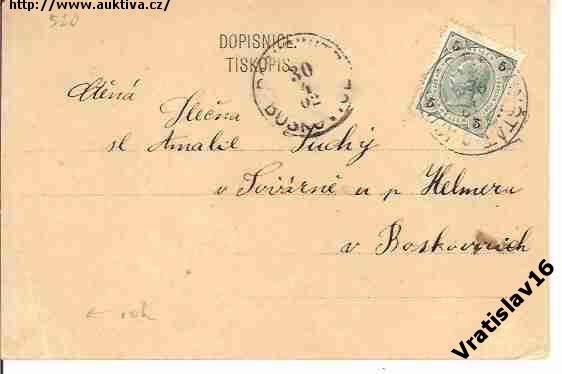 http://www.auktiva.cz/
520
DOPISNICE.
TISKOPIS.
30
02
5 5
5 5
Ctěná Slečna
sl. Amalie Suchý
v Továrně u p Helmera
v Boskovicích
roh
Vratislav16